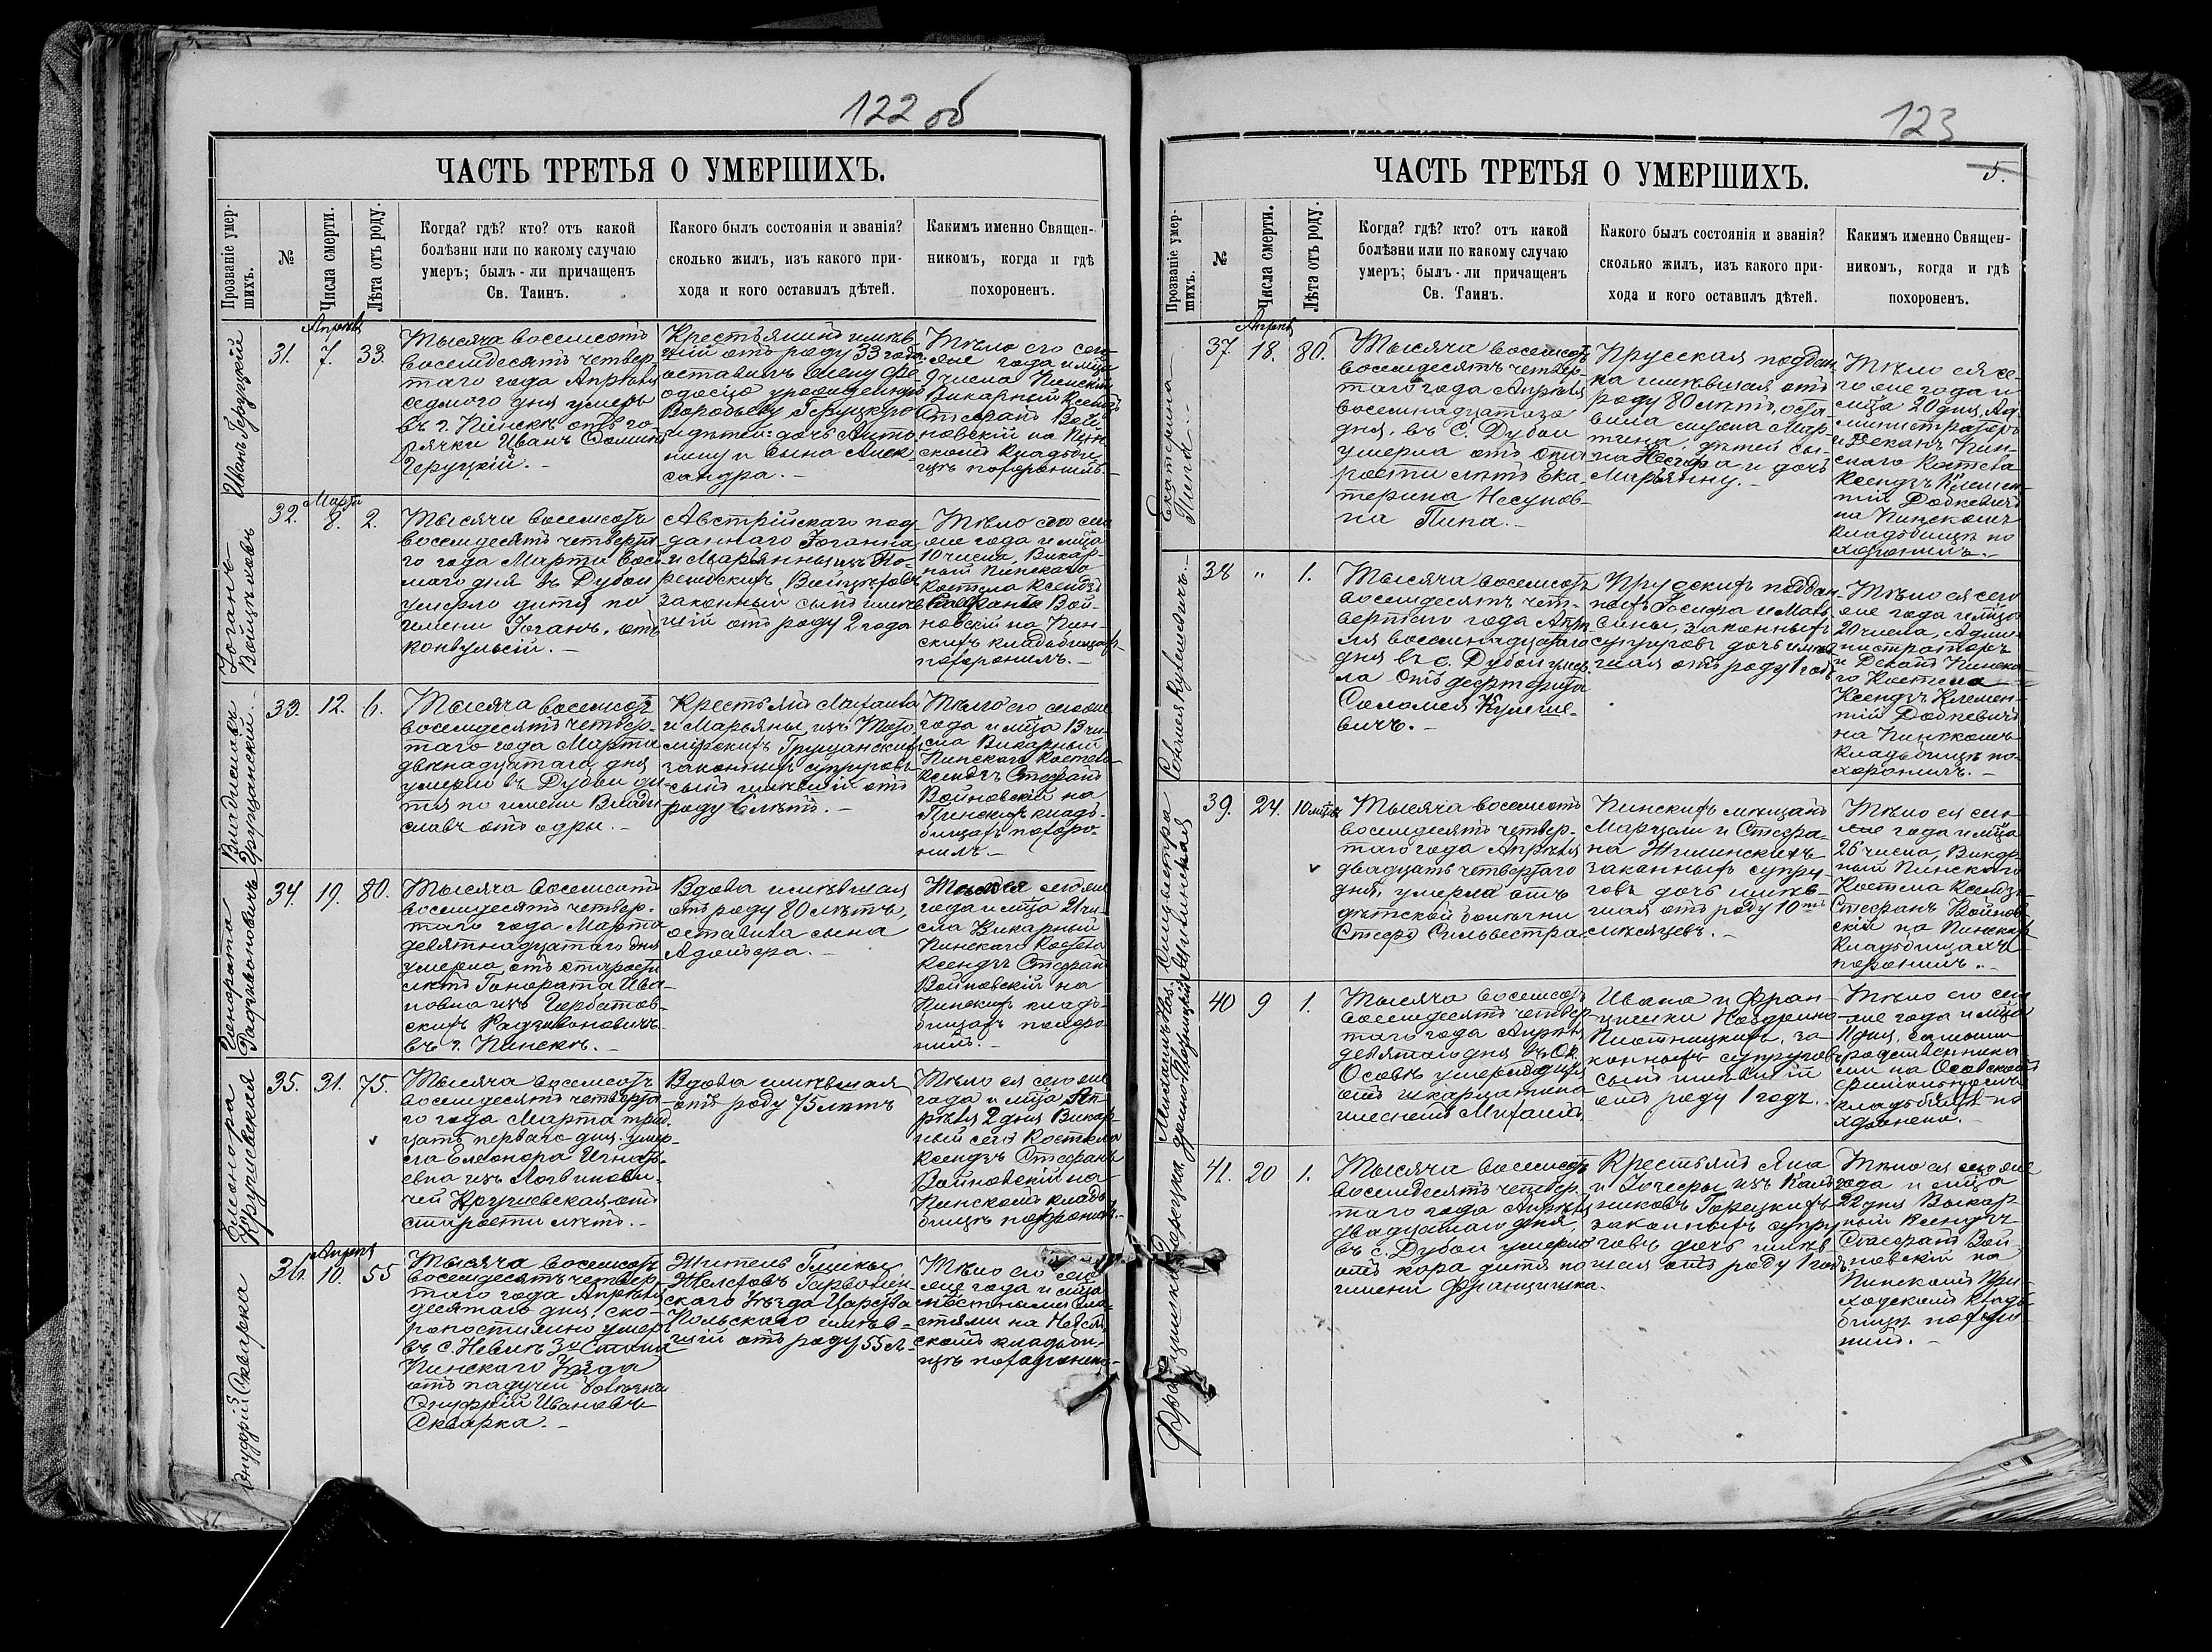 122 об
ЧАСТЬ ТРЕТЬЯ О УМЕРШИХЪ.
Прозваніе умер-
шихъ.
№
Числа смерти.
Лѣта отъ роду.
Когда? гдѣ? кто? отъ какой
болѣзни или по какому случаю
умеръ; былъ-ли причащенъ
Св. Таинъ.
Какого былъ состоянія и званія?
сколько жилъ, изъ какого при-
хода и кого оставилъ дѣтей.
Какимъ именно Священ-
никомъ, когда и гдѣ
похороненъ.
Иванъ Геруцкій
31.
Апрѣль
7.
33.
Тысяча восемсотъ
восемдесятъ четвер-
таго года Апрѣля
седмого дня умеръ
въ г. Пинскѣ отъ го-
рячки Иванъ
Геруцкій. –
Крестьянинъ имѣв-
шій отъ роду 33 года
оставилъ жену Фе
одосію урожденную
Воробьеву Геруцкую
и дѣтей: дочь Анто-
нину и сына Алек-
сандра. –
Тѣло его сего
же года и мѣца
9 числа Пинскій
Викарный Ксендзъ
Стефанъ Вой-
новскій на Пин
скомъ кладби-
щѣ похоронилъ. –
Іоганъ
Войцѣховъ
32.
Марта
8.
2.
Тысяча восемсотъ
восемдесятъ четверта-
го года Марта вось-
маго дня въ Дубои
умерло дитя по
имени Іоганъ, отъ
конвульсій. –
Австрійскаго под-
даннаго Іоганна
и Марьянны изъ
Войцѣховъ
законный сынъ имѣв-
шій отъ роду 2 года
Тѣло его сего
же года и мѣца
10 числа, Викар-
ный Пинскаго
Костела Ксендзъ
Стефанъ Вой-
новскій на Пин-
скихъ кладбищахъ
похоронилъ. –
Владиславъ
Грущанскій. –
33.
12.
6.
Тысяча восемсотъ
восемдесятъ четвер-
таго года Марта
двѣнадцатаго дня
умерло въ Дубои ди
тя по имени Влади
славъ отъ одры. –
Крестьянъ Михаила
и Марьяны изъ
Грущанскихъ
законныхъ супруговъ
сынъ имѣвшій отъ
роду 6 лѣтъ. –
Тѣло его сего же
года и мѣца 13 чи-
сла Викарный
Пинскаго Костела
Ксендзъ Стефанъ
Войновскій на
Пинскихъ кладъ-
бищахъ похоро-
нилъ. –
Гонората
Радзивоновичъ
34.
19.
80.
Тысяча восемсотъ
восемдесятъ четвер-
таго года Марта
девятнадцатаго дня
умерла отъ старости
лѣтъ Гонората Ива-
новна изъ Горбатов-
скихъ Радзивоновичъ
въ г. Пинскѣ. –
Вдова имѣвшая
отъ роду 80 лѣтъ,
оставила сына
Адольфа. –
Тѣло ея сего же
года и мѣца 21 чи-
сла Викарный
Пинскаго Костела
Ксендзъ Стефанъ
Войновскій на
Пинскихъ кладъ-
бищахъ похоро-
нилъ. –
Элеонора
Кручевская
35.
31.
75.
Тысяча восемсотъ
восемдесятъ четверта-
го года Марта трид
цать перваго дня умер-
ла Елеонора Игнать-
евна изъ Логвинови-
чей Кручевская отъ
старости лѣтъ. –
Вдова имѣвшая
отъ роду 75 лѣтъ
Тѣло ея сего же
года и мѣца Ап-
рѣля 2 дня Викар-
ный сего Костела
Ксендзъ Стефанъ
Войновскій на
Пинскомъ кладъ
бищѣ похоронилъ. –
Онуфрій Скварка
36.
Апрѣль
10.
55
Тысяча восемсотъ
восемдесятъ четвер
таго года Апрѣля
десятаго дня ско-
ропостижно умеръ
въ с. Невль 3го Стана
Пинскаго Уѣзда
отъ падучей болѣзни
Онуфрій Ивановъ
Скварка. –
Житель
Желеховъ Гарволин-
скаго Уѣзда Царства
Польскаго имѣв-
шій отъ роду 55 л.
Тѣло его сего
же года и мѣца
мѣстными вла-
стями на Невль
скомъ кладби-
щѣ похоронено. –
123
5.
ЧАСТЬ ТРЕТЬЯ О УМЕРШИХЪ.
Прозваніе умер-
шихъ.
№
Числа смерти.
Лѣта отъ роду.
Когда? гдѣ? кто? отъ какой
болѣзни или по какому случаю
умеръ; былъ-ли причащенъ
Св. Таинъ.
Какого былъ состоянія и званія?
сколько жилъ, изъ какого при-
хода и кого оставилъ дѣтей.
Какимъ именно Священ-
никомъ, когда и гдѣ
похороненъ.
Екатерина
37.
Апрѣль
18.
80.
Тысяча восемсотъ
восемдесятъ четвер-
таго года Апрѣля
восемнадцатаго
дня, въ с. Дубои
умерла отъ ста
рости лѣтъ Ека-
терина
на Пипа. –
Прусская поддан-
ка имѣвшая отъ
роду 80 лѣтъ, оста
вила мужа Мар-
тина, дѣтей сы-
на и дочь
Марьянну. –
Тѣло ея се-
го же года и
мѣца 20 дня, Ад-
министраторъ
и Деканъ Пин-
скаго Костела
Ксендзъ Клемен-
тій Доткевичъ
на Пинскомъ
кладъбищѣ по
хоронилъ. –
Соломея Кулешевичъ. –
38
"
1.
Тысяча восемсотъ
восемдесятъ чет-
вертаго года Апрѣ-
ля восемнадцатаго
дня въ с. Дубои умер
ла отъ дефтерита
Саломея Кулеше-
вичъ. –
Прусскихъ поддан-
ныхъ Іосифа и
законныхъ
супруговъ дочь имѣв
шая отъ роду 1 годъ
Тѣло ея сего
же года и мѣца
20 числа, Адми-
нистраторъ
и Деканъ Пинска
го Костела
Ксендзъ Клемен-
тій Доткевичъ
на Пинскомъ
кладъбищѣ по-
хоронилъ. –
Сильвестра
Жилинская
39.
24.
10 мѣцев
Тысяча восемсотъ
восемдесятъ четвер-
таго года Апрѣля
двадцать четвертаго
дня, умерла отъ
дѣтской болѣзни
Сильвестра.
Пинскихъ мѣщанъ
Марцели и Стефа-
на Жилинскихъ
законныхъ супру-
говъ дочь имѣв-
шая отъ роду 10ть
мѣсяцевъ. –
Тѣло ея сего
же года и мѣца
26 числа, Викар-
ный Пинскаго
Костела Ксендзъ
Стефанъ Войнов
скій на Пинскихъ
кладъбищахъ
хоронилъ. –
40
9
1.
Тысяча восемсотъ
восемдесятъ четвер
таго года Апрѣля
девятаго дня въ Ок.
Осовѣ умерло дитя
отъ шкарлатина
именемъ Михаилъ
Ивана и Фран-
цишки Ноздрино
Плотницкихъ, за-
конныхъ супруговъ
сынъ имѣвшій
отъ роду 1 годъ. –
Тѣло его сего
же года и мѣца
11 дня, самыми
родственника-
ми на Осовскомъ
кладбищѣ по
хоронено. –
Францишка Горецкая
41.
20
1.
Тысяча восемсотъ
восемдесятъ четвер.
таго года Апрѣля
двадцатаго дня,
въ с. Дубои умерло
отъ кора дитя по
имени Францишка.
Крестьянъ Яна
и Іозефы изъ
никовъ Горецкихъ
законныхъ супру
говъ дочь имѣв
шая отъ роду 1 годъ.
Тѣло ея сего же
года и мѣца
22 дня Викар
ный Ксендзъ
Стефанъ Вой-
новскій на
Пинскомъ При-
ходскомъ кладъ
бищѣ похоро
нилъ. –